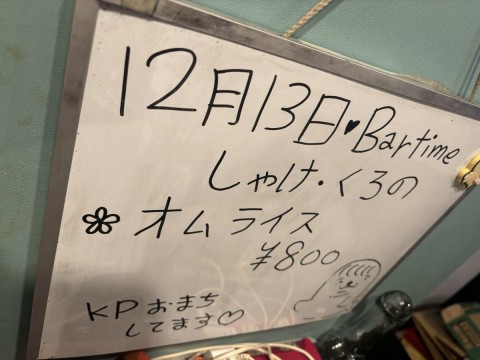 12月13日♥Bartime
しゃけ・くろの
オムライス
¥800
KPおまち
してます♡